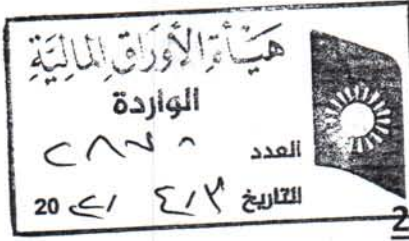 هيأة الأوراق المالية
الواردة
العدد
التاريخ ٤/٣ / 20
2